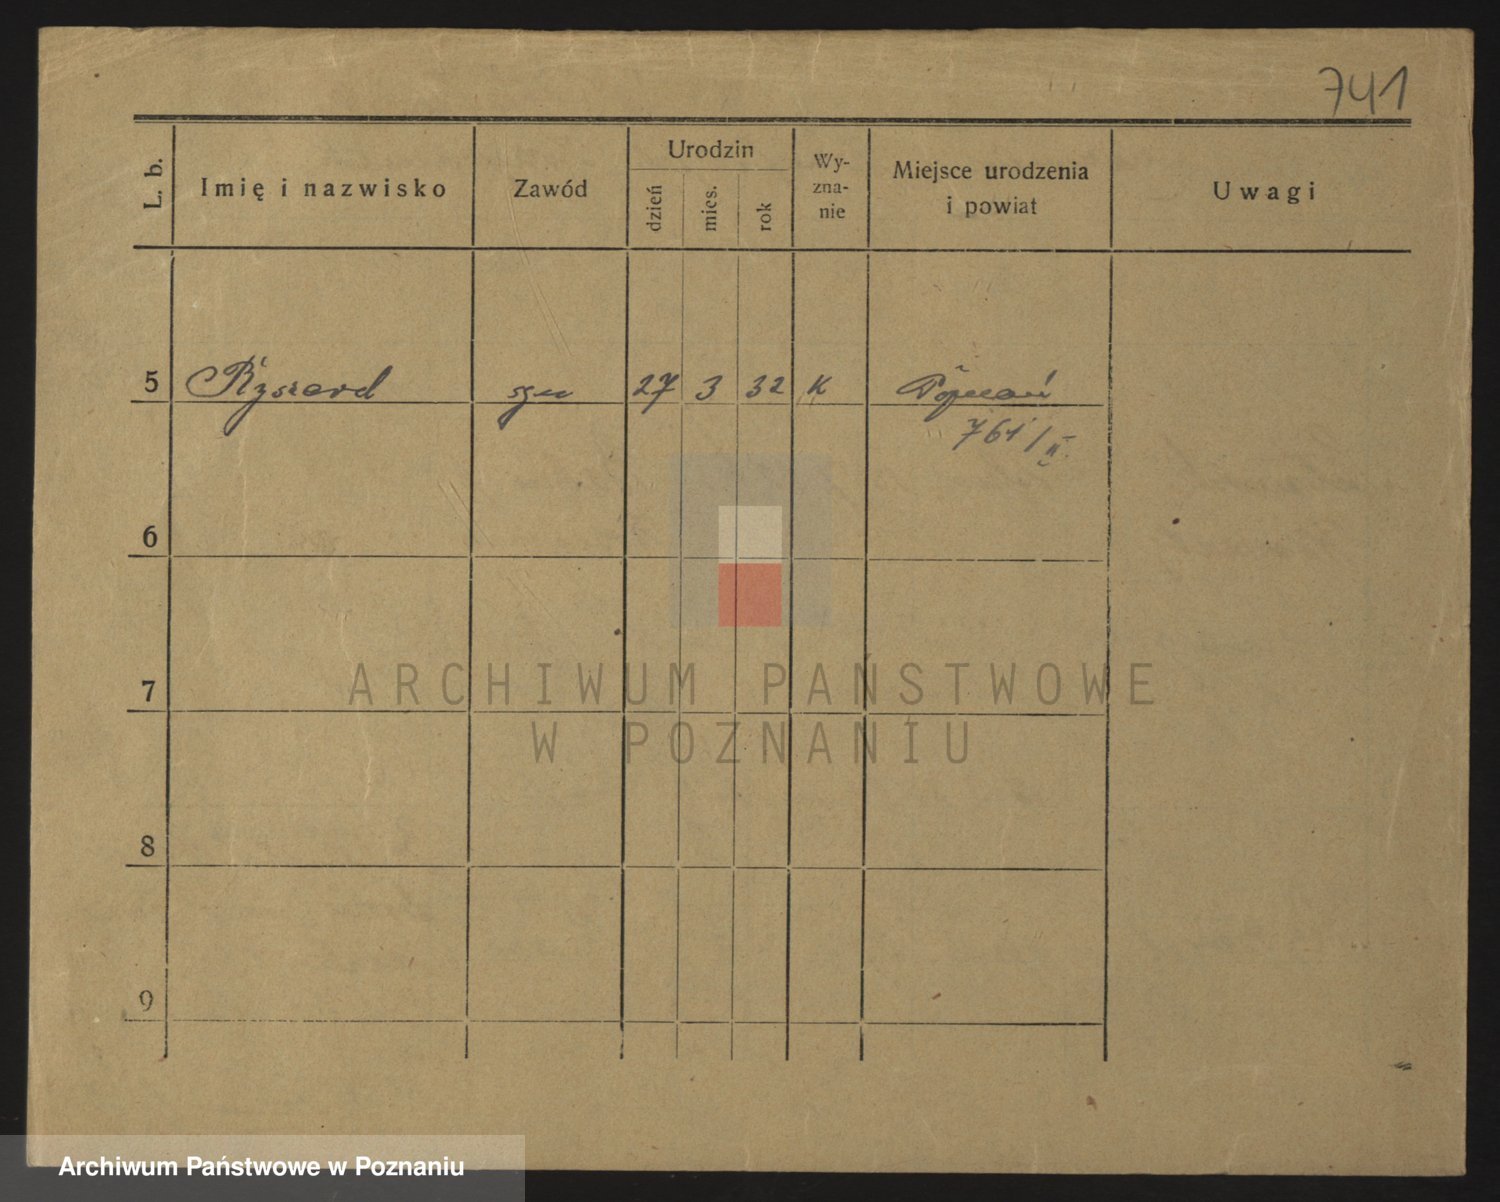 741
L. b.
Imię i nazwisko
Zawód
Urodzin
dzień
mies.
rok
Wy-
zna-
nie
Miejsce urodzenia
i powiat
Uwagi
5 Ryszard syn 27 3 32 K Poznań
761/II.
6
7
8
9
ARCHIWUM PAŃSTWOWE
W POZNANIU
Archiwum Państwowe w Poznaniu